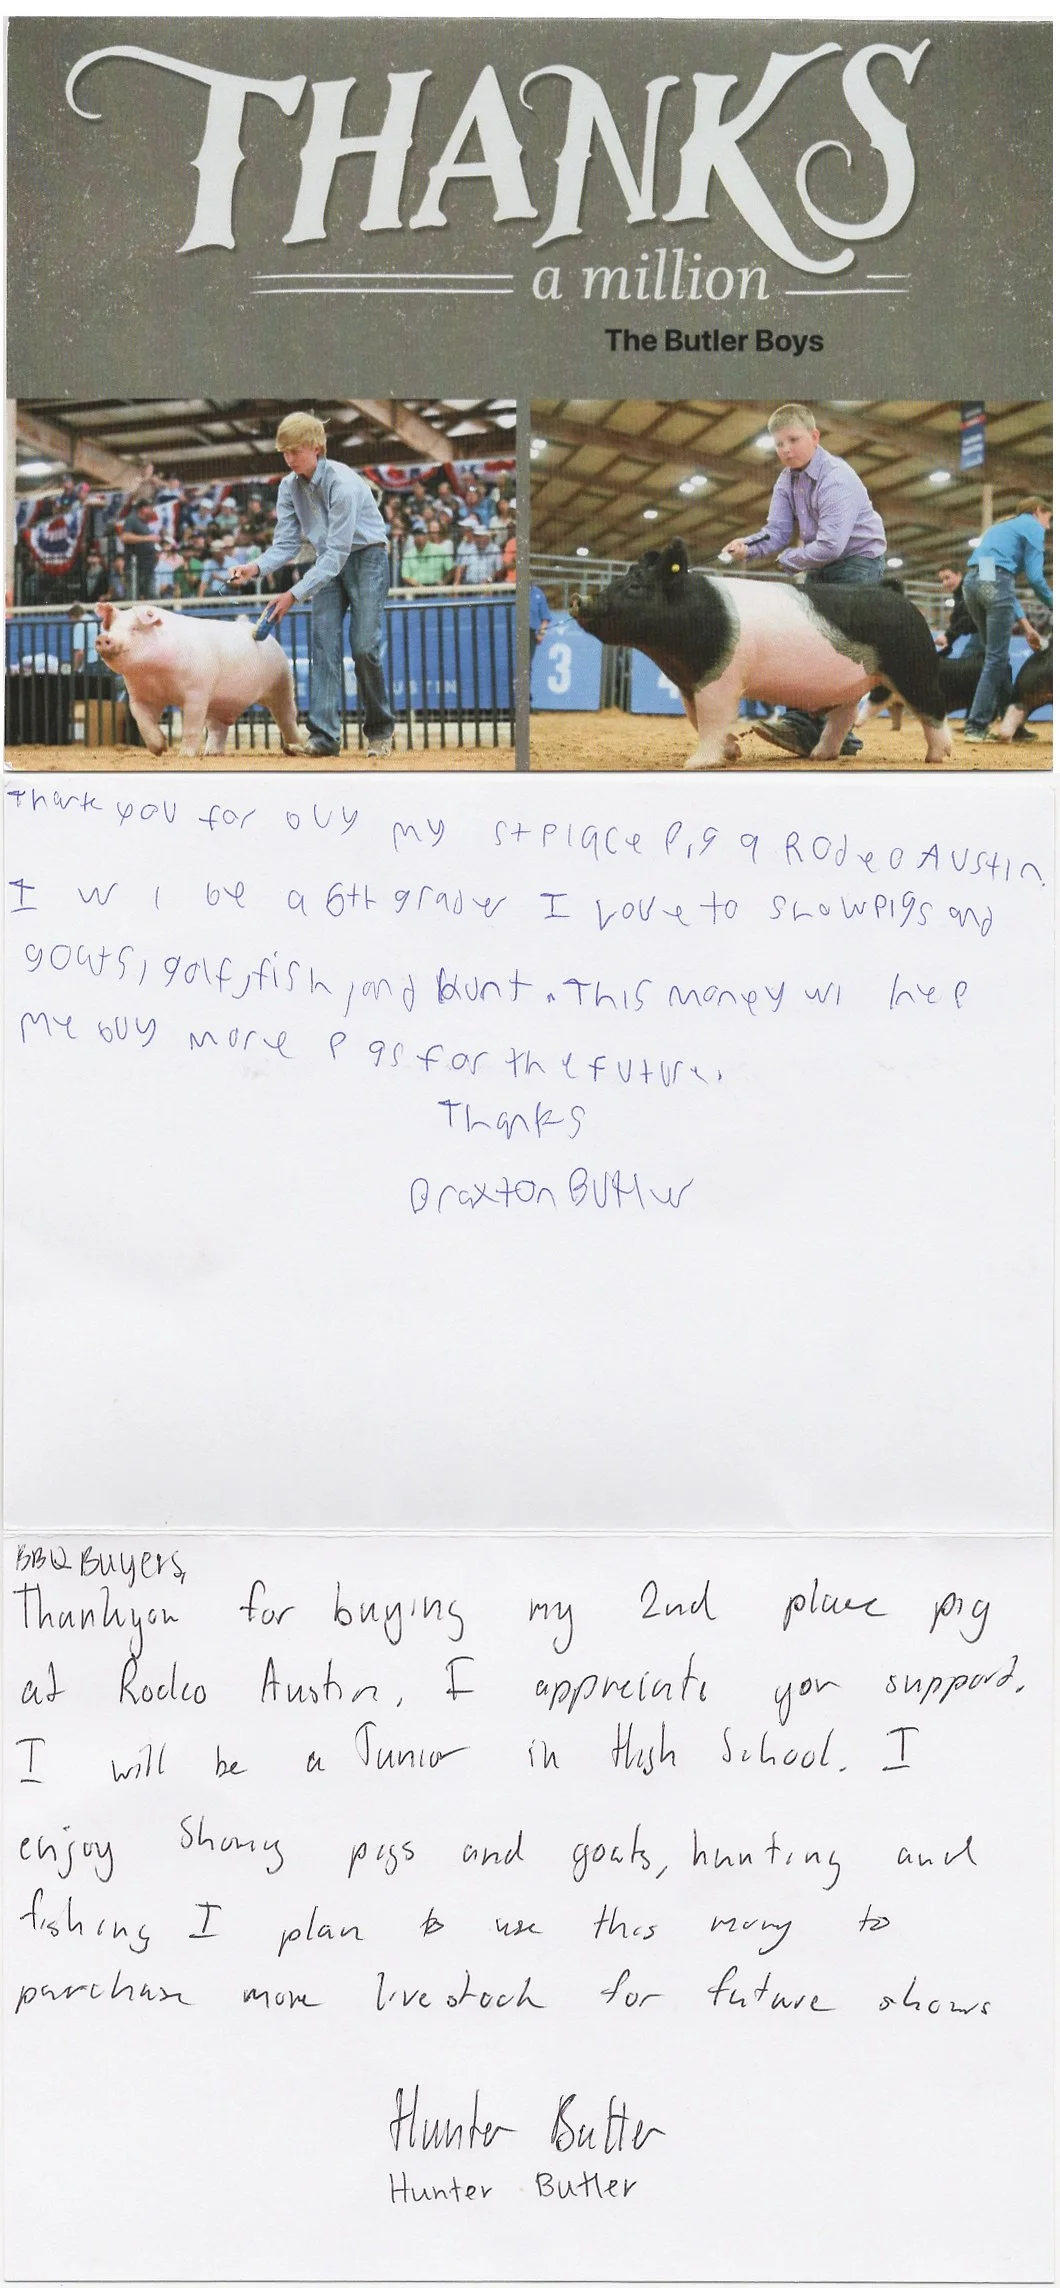 THANKS
a million
The Butler Boys
3
AUSTIN
Thank you for buy my st place pig a Rodeo Austin.
I w i be a 6th grader I love to show pigs and
goats, golf, fish, and hunt. This money wi help
me buy more p gs for the future.
Thanks
Braxton Butler
BBQ Buyers,
Thankyou for buying my 2nd place pig
at Rodeo Austin. I appreciate your support.
I will be a Junior in High School. I
enjoy Showing pigs and goats, hunting and
fishing I plan to use this money to
purchase more livestock for future shows
Hunter Butler
Hunter Butler